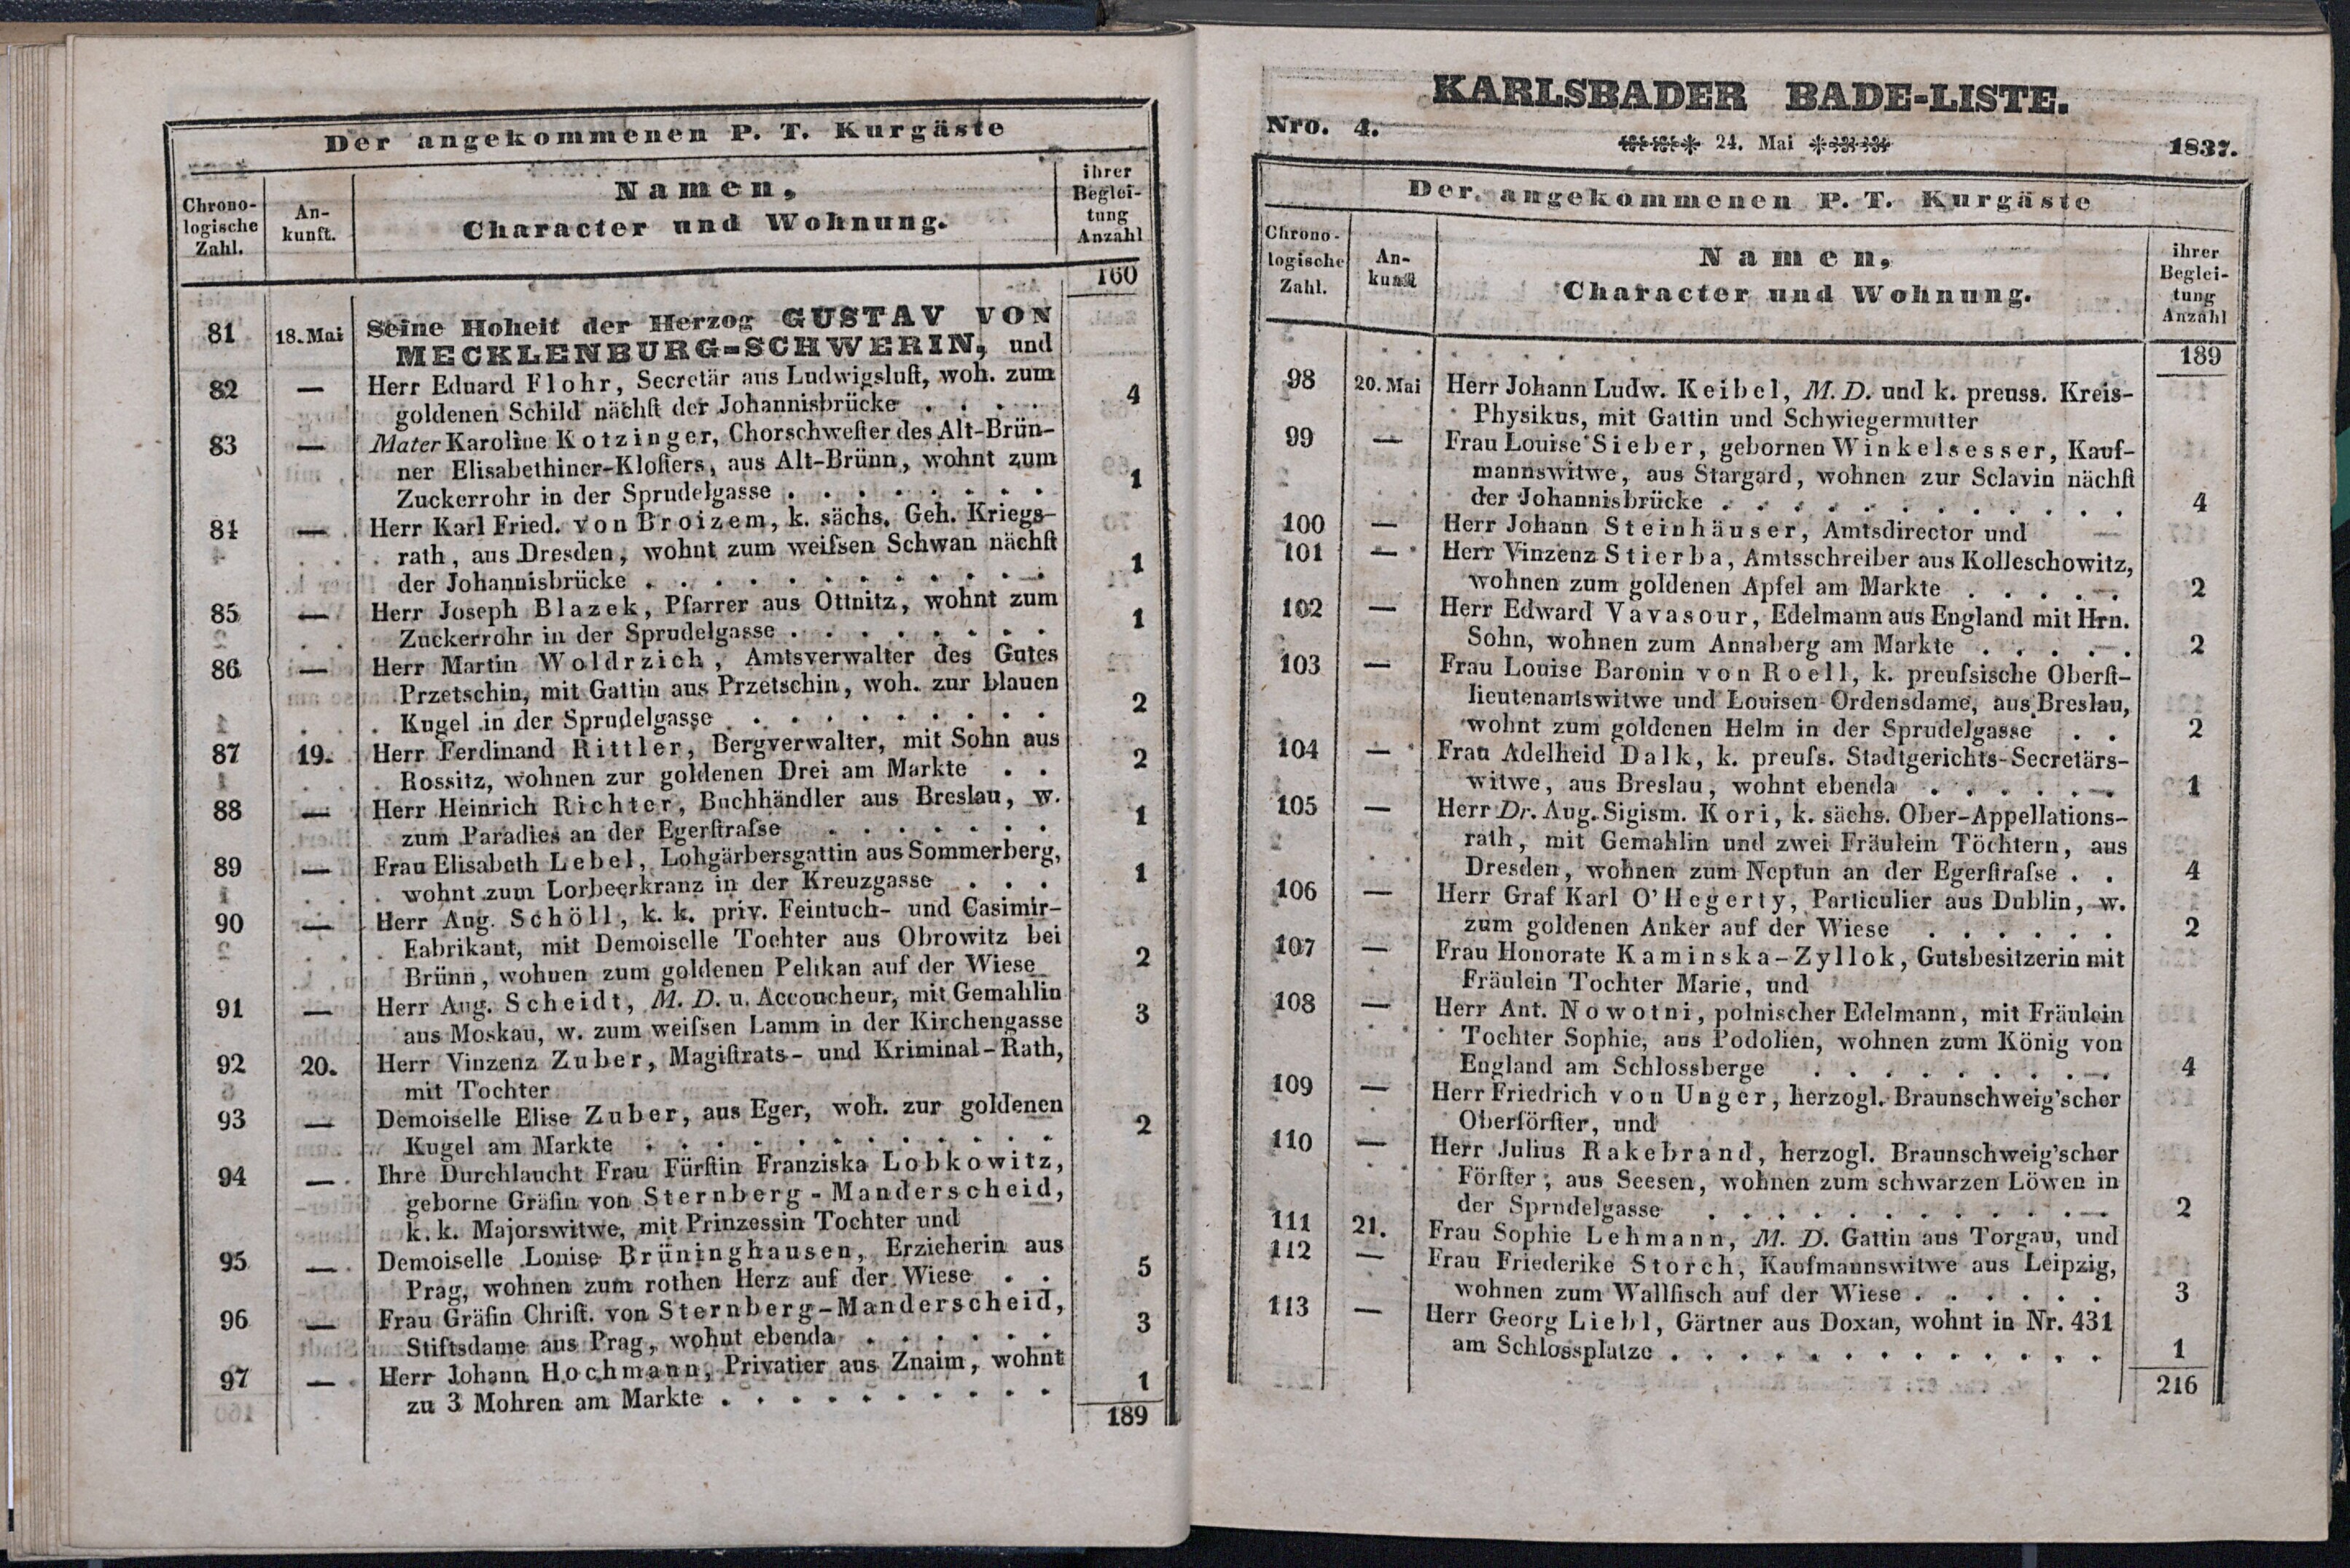 Der angekommenen P. T. Kurgäste
Chrono-
logische
Zahl.
An-
kunft.
Namen,
Character und Wohnung.
ihrer
Beglei-
tung
Anzahl
160
81 18. Mai Seine Hoheit der Herzog GUSTAV VON
MECKLENBURG-SCHWERIN, und
82 — Herr Eduard Flohr, Secretär aus Ludwigslust, woh. zum
goldenen Schild nächst der Johannisbrücke . . . . 4
83 — Mater Karoline Kotzinger, Chorschwester des Alt-Brün-
ner Elisabethiner-Klosters, aus Alt-Brünn, wohnt zum
Zuckerrohr in der Sprudelgasse . . . . . . . . 1
84 — Herr Karl Fried. von Broizem, k. sächs. Geh. Kriegs-
rath, aus Dresden, wohnt zum weifsen Schwan nächst
der Johannisbrücke . . . . . . . . . . . 1
85 — Herr Joseph Blazek, Pfarrer aus Ottnitz, wohnt zum
Zuckerrohr in der Sprudelgasse . . . . . . . . 1
86 — Herr Martin Woldrzich, Amtsverwalter des Gutes
Przetschin, mit Gattin aus Przetschin, woh. zur blauen
Kugel in der Sprudelgasse . . . . . . . . . 2
87 19. Herr Ferdinand Rittler, Bergverwalter, mit Sohn aus
Rossitz, wohnen zur goldenen Drei am Markte . . 2
88 — Herr Heinrich Richter, Buchhändler aus Breslau, w.
zum Paradies an der Egerstrafse . . . . . . . 1
89 — Frau Elisabeth Lebel, Lohgärbersgattin aus Sommerberg,
wohnt zum Lorbeerkranz in der Kreuzgasse . . . 1
90 — Herr Aug. Schöll, k. k. priv. Feintuch- und Casimir-
Fabrikant, mit Demoiselle Tochter aus Obrowitz bei
Brünn, wohnen zum goldenen Pelikan auf der Wiese 2
91 — Herr Aug. Scheidt, M. D. u. Accoucheur, mit Gemahlin
aus Moskau, w. zum weifsen Lamm in der Kirchengasse 3
92 20. Herr Vinzenz Zuber, Magistrats- und Kriminal-Rath,
mit Tochter
93 — Demoiselle Elise Zuber, aus Eger, woh. zur goldenen
Kugel am Markte . . . . . . . . . . . . 2
94 — Ihre Durchlaucht Frau Fürstin Franziska Lobkowitz,
geborne Gräfin von Sternberg-Manderscheid,
k. k. Majorswitwe, mit Prinzessin Tochter und
95 — Demoiselle Louise Brüninghausen, Erzieherin aus
Prag, wohnen zum rothen Herz auf der Wiese . . 5
96 — Frau Gräfin Christ. von Sternberg-Manderscheid,
Stiftsdame aus Prag, wohnt ebenda . . . . . . 3
97 — Herr Johann Hochmann, Privatier aus Znaim, wohnt
zu 3 Mohren am Markte . . . . . . . . . . 1
189
KARLSBADER BADE-LISTE.
Nro. 4. 24. Mai 1837.
Der angekommenen P. T. Kurgäste
Chrono-
logische
Zahl.
An-
kunft
Namen,
Character und Wohnung.
ihrer
Beglei-
tung
Anzahl
189
98 20. Mai Herr Johann Ludw. Keibel, M. D. und k. preuss. Kreis-
Physikus, mit Gattin und Schwiegermutter
99 — Frau Louise Sieber, gebornen Winkelsesser, Kauf-
mannswitwe, aus Stargard, wohnen zur Sclavin nächst
der Johannisbrücke . . . . . . . . . . . 4
100 — Herr Johann Steinhäuser, Amtsdirector und
101 — Herr Vinzenz Stierba, Amtsschreiber aus Kolleschowitz,
wohnen zum goldenen Apfel am Markte . . . . . 2
102 — Herr Edward Vavasour, Edelmann aus England mit Hrn.
Sohn, wohnen zum Annaberg am Markte . . . . . 2
103 — Frau Louise Baronin von Roell, k. preufsische Oberst-
lieutenantswitwe und Louisen-Ordensdame, aus Breslau,
wohnt zum goldenen Helm in der Sprudelgasse . . 2
104 — Frau Adelheid Dalk, k. preufs. Stadtgerichts-Secretärs-
witwe, aus Breslau, wohnt ebenda . . . . . . 1
105 — Herr Dr. Aug. Sigism. Kori, k. sächs. Ober-Appellations-
rath, mit Gemahlin und zwei Fräulein Töchtern, aus
Dresden, wohnen zum Neptun an der Egerstrafse . . 4
106 — Herr Graf Karl O'Hegerty, Particulier aus Dublin, w.
zum goldenen Anker auf der Wiese . . . . . . 2
107 — Frau Honorate Kaminska-Zyllok, Gutsbesitzerin mit
Fräulein Tochter Marie, und
108 — Herr Ant. Nowotni, polnischer Edelmann, mit Fräulein
Tochter Sophie, aus Podolien, wohnen zum König von
England am Schlossberge . . . . . . . . . 4
109 — Herr Friedrich von Unger, herzogl. Braunschweig'scher
Oberförster, und
110 — Herr Julius Rakebrand, herzogl. Braunschweig'scher
Förster, aus Seesen, wohnen zum schwarzen Löwen in
der Sprudelgasse . . . . . . . . . . . 2
111 21. Frau Sophie Lehmann, M. D. Gattin aus Torgau, und
112 — Frau Friederike Storch, Kaufmannswitwe aus Leipzig,
wohnen zum Wallfisch auf der Wiese . . . . . . 3
113 — Herr Georg Liebl, Gärtner aus Doxan, wohnt in Nr. 431
am Schlossplatze . . . . . . . . . . . . . 1
216